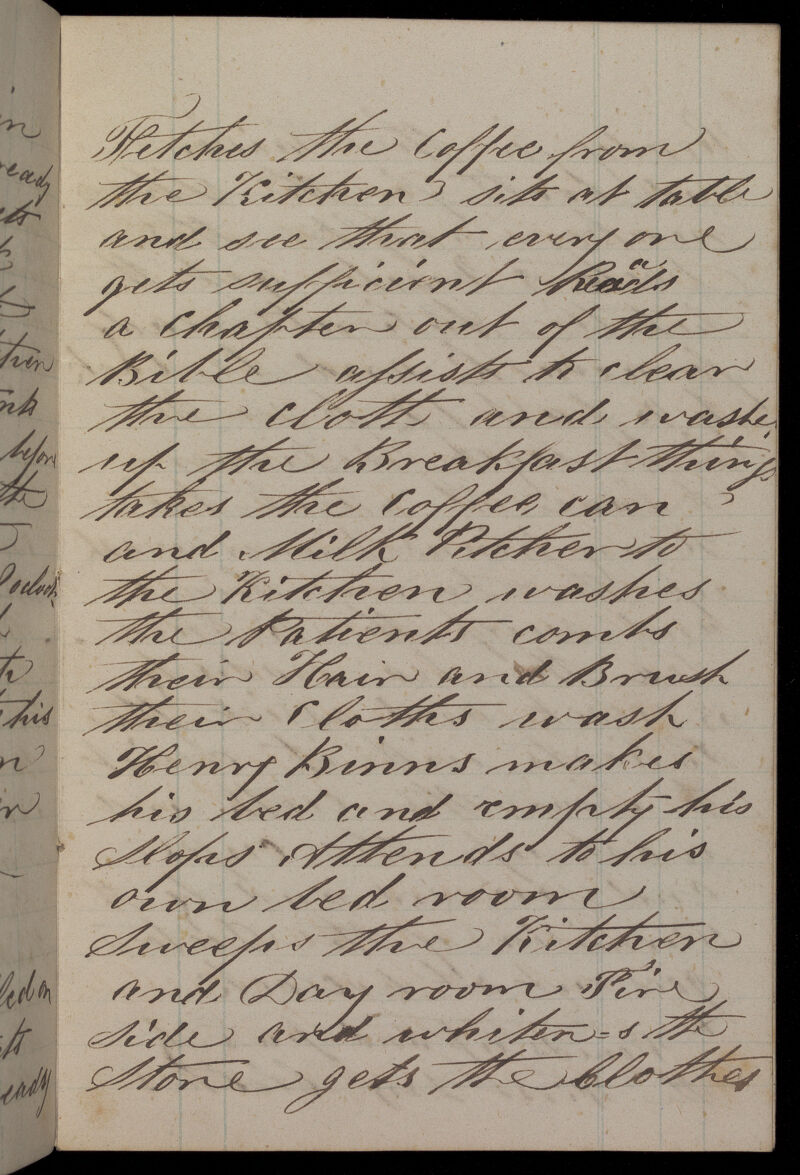 in
Fetches the Coffee from
ready
the Kitchen sits at table
and see that every one
gets sufficient Reads
a Chapter out of the
Bible assists to clear
the cloth and washe
up the Breakfast things
before
takes the Coffee can
the
and Milk Pitcher to
oclock
the Kitchen washes
the Patients combs
their Hair and Brush
their Cloths wash
this
Henry Binns makes
his bed and empty his
Slops Attends to his
own bed room
Sweeps the Kitchen
and Day room Fire
side and whiten=s the
Stone gets the Clothes
ready